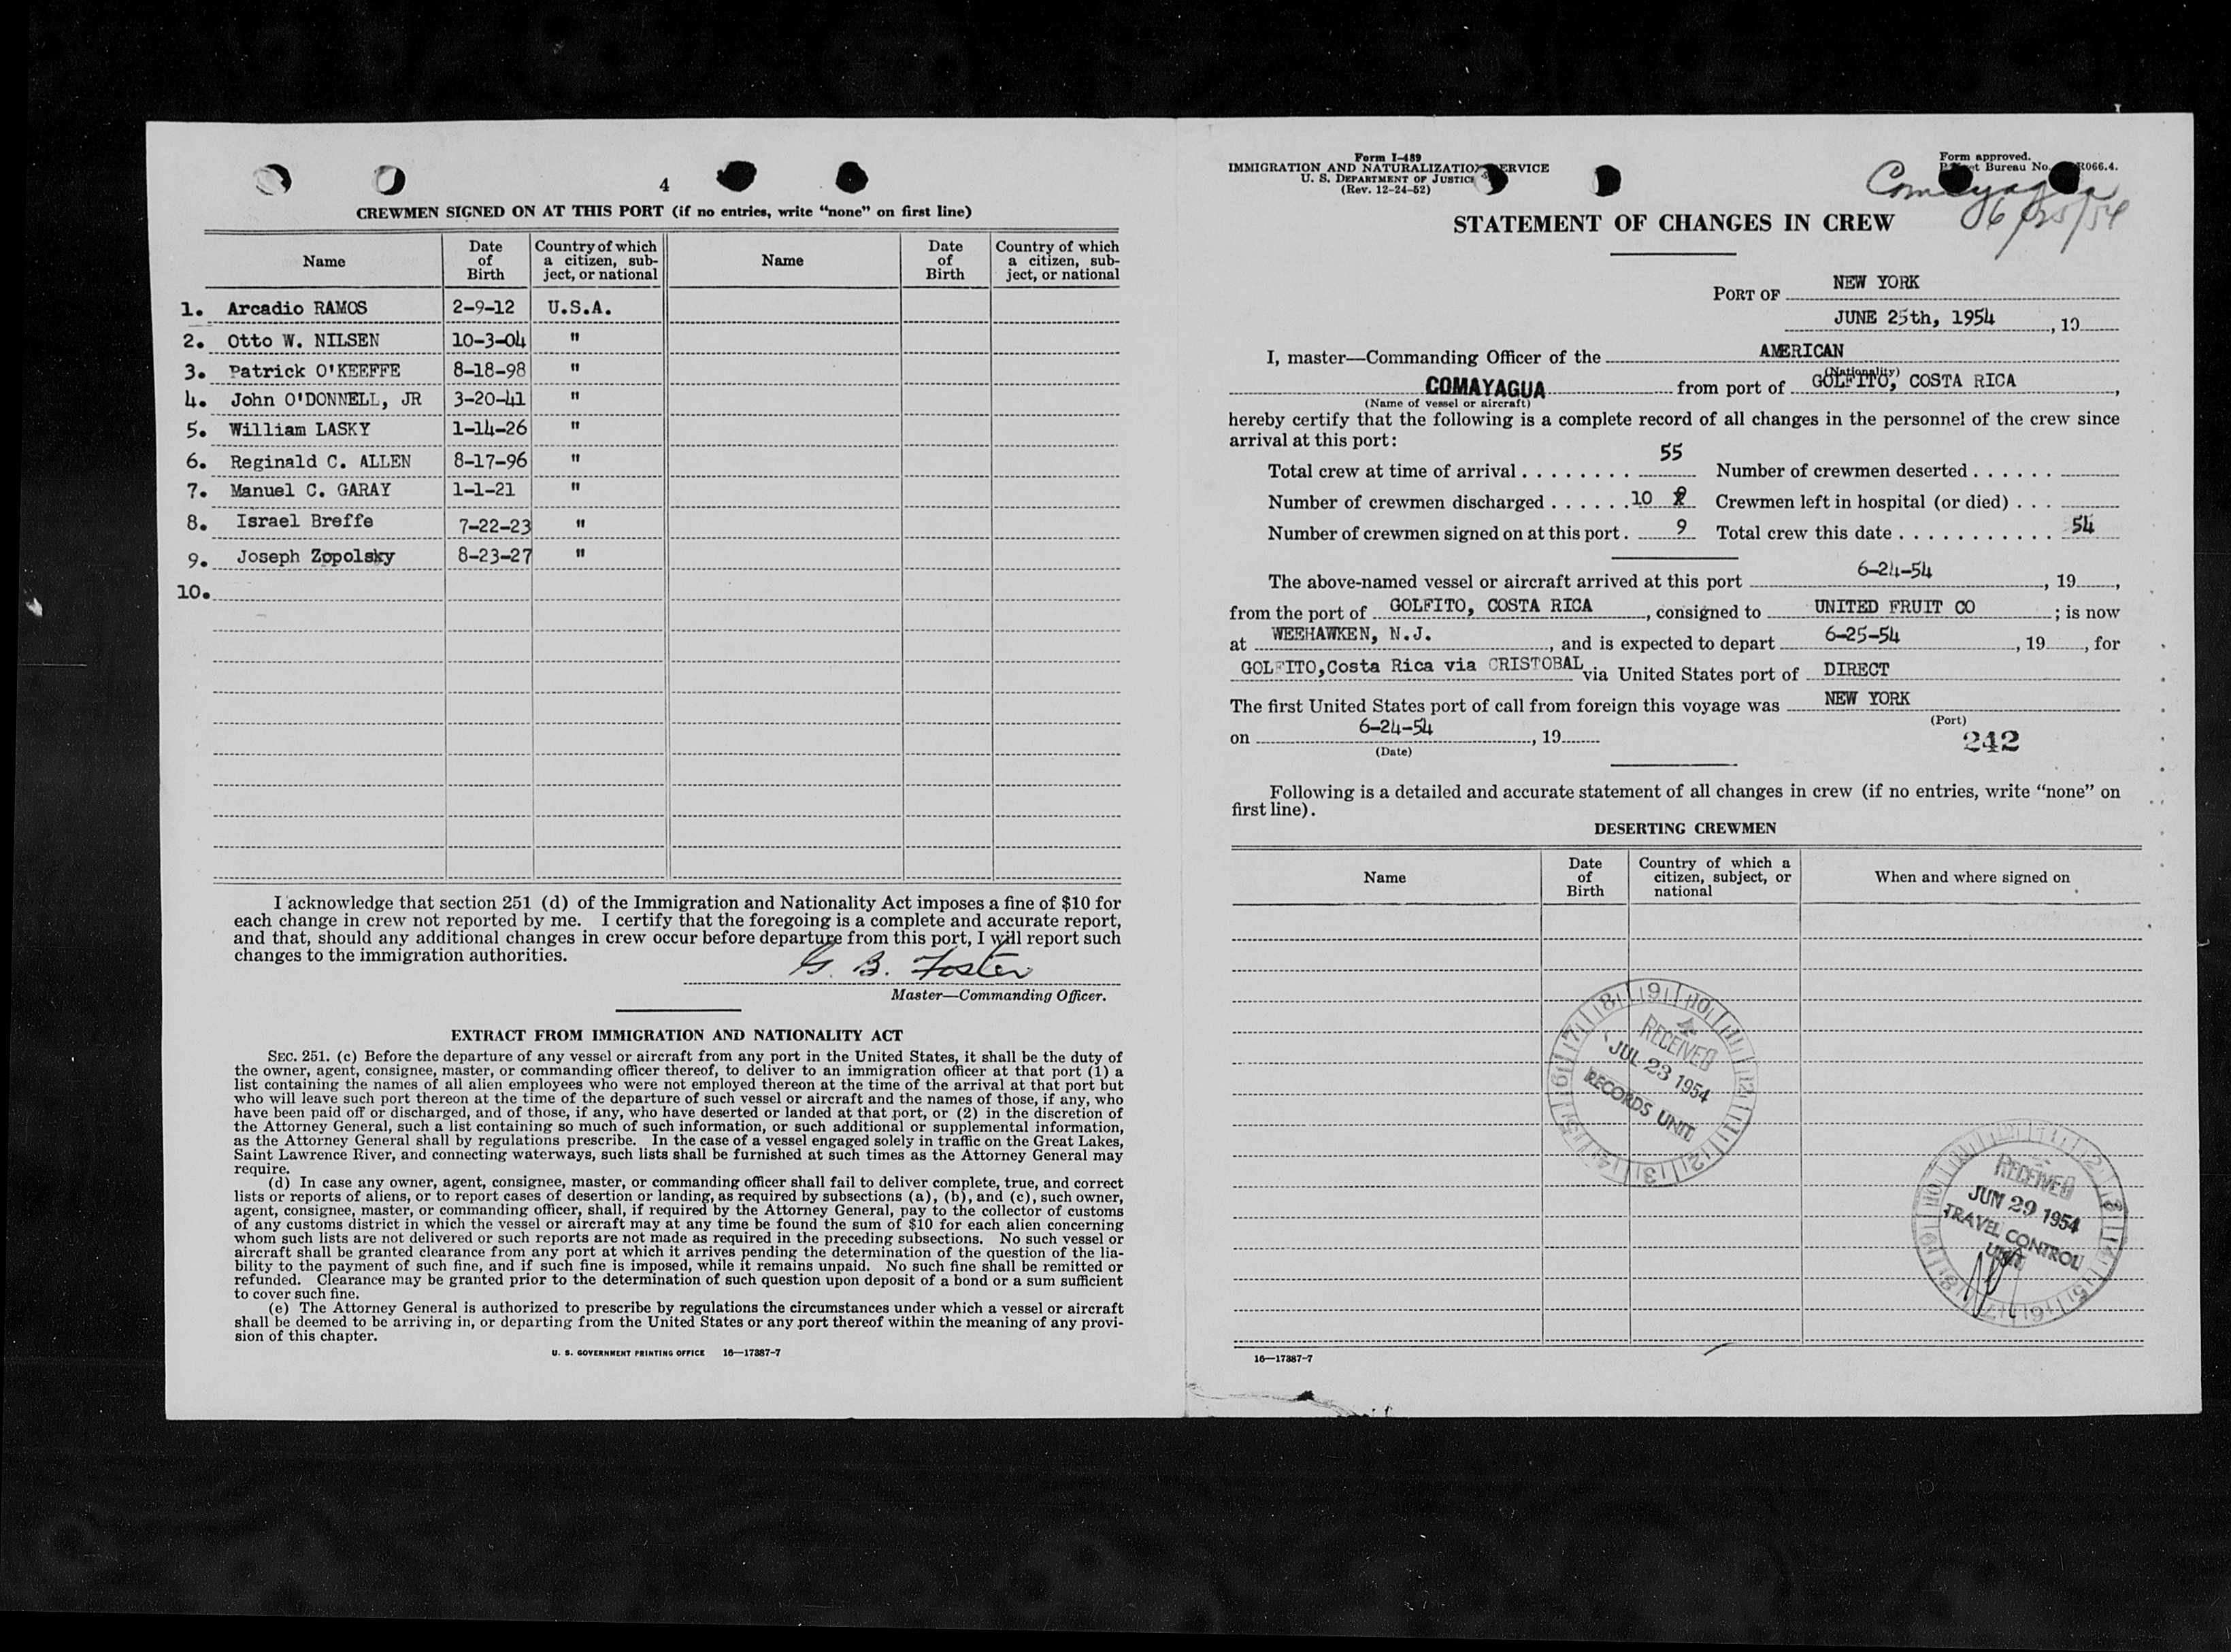 4
CREWMEN SIGNED ON AT THIS PORT (if no entries, write “none” on first line)
Name Date of Birth Country of which a citizen, subject, or national Name Date of Birth Country of which a citizen, subject, or national
1. Arcadio RAMOS 2-9-12 U.S.A.
2. Otto W. NILSEN 10-3-04 "
3. Patrick O'KEEFFE 8-18-98 "
4. John O'DONNELL, JR 3-20-41 "
5. William LASKY 1-14-26 "
6. Reginald C. ALLEN 8-17-96 "
7. Manuel C. GARAY 1-1-21 "
8. Israel Breffe 7-22-23 "
9. Joseph Zopolsky 8-23-27 "
10.
I acknowledge that section 251 (d) of the Immigration and Nationality Act imposes a fine of $10 for
each change in crew not reported by me. I certify that the foregoing is a complete and accurate report,
and that, should any additional changes in crew occur before departure from this port, I will report such
changes to the immigration authorities.
G. B. Foster
Master—Commanding Officer.
EXTRACT FROM IMMIGRATION AND NATIONALITY ACT
SEC. 251. (c) Before the departure of any vessel or aircraft from any port in the United States, it shall be the duty of
the owner, agent, consignee, master, or commanding officer thereof, to deliver to an immigration officer at that port (1) a
list containing the names of all alien employees who were not employed thereon at the time of the arrival at that port but
who will leave such port thereon at the time of the departure of such vessel or aircraft and the names of those, if any, who
have been paid off or discharged, and of those, if any, who have deserted or landed at that port, or (2) in the discretion of
the Attorney General, such a list containing so much of such information, or such additional or supplemental information,
as the Attorney General shall by regulations prescribe. In the case of a vessel engaged solely in traffic on the Great Lakes,
Saint Lawrence River, and connecting waterways, such lists shall be furnished at such times as the Attorney General may
require.
(d) In case any owner, agent, consignee, master, or commanding officer shall fail to deliver complete, true, and correct
lists or reports of aliens, or to report cases of desertion or landing, as required by subsections (a), (b), and (c), such owner,
agent, consignee, master, or commanding officer, shall, if required by the Attorney General, pay to the collector of customs
of any customs district in which the vessel or aircraft may at any time be found the sum of $10 for each alien concerning
whom such lists are not delivered or such reports are not made as required in the preceding subsections. No such vessel or
aircraft shall be granted clearance from any port at which it arrives pending the determination of the question of the lia-
bility to the payment of such fine, and if such fine is imposed, while it remains unpaid. No such fine shall be remitted or
refunded. Clearance may be granted prior to the determination of such question upon deposit of a bond or a sum sufficient
to cover such fine.
(e) The Attorney General is authorized to prescribe by regulations the circumstances under which a vessel or aircraft
shall be deemed to be arriving in, or departing from the United States or any port thereof within the meaning of any provi-
sion of this chapter.
U. S. GOVERNMENT PRINTING OFFICE 16—17387-7
Form I-489
IMMIGRATION AND NATURALIZATION SERVICE
U. S. DEPARTMENT OF JUSTICE
(Rev. 12-24-52)
Form approved.
Bureau No. R066.4.
Comayagua
6/25/54
STATEMENT OF CHANGES IN CREW
PORT OF NEW YORK
JUNE 25th, 1954, 19
I, master—Commanding Officer of the AMERICAN
(Nationality)
COMAYAGUA from port of GOLFITO, COSTA RICA,
(Name of vessel or aircraft)
hereby certify that the following is a complete record of all changes in the personnel of the crew since
arrival at this port:
Total crew at time of arrival . . . . . . . . 55 Number of crewmen deserted . . . . . .
Number of crewmen discharged . . . . . . 10 Crewmen left in hospital (or died) . . .
Number of crewmen signed on at this port . 9 Total crew this date . . . . . . . . . . . . 54
The above-named vessel or aircraft arrived at this port 6-24-54, 19,
from the port of GOLFITO, COSTA RICA, consigned to UNITED FRUIT CO; is now
at WEEHAWKEN, N.J., and is expected to depart 6-25-54, 19, for
GOLFITO,Costa Rica via CRISTOBAL via United States port of DIRECT
The first United States port of call from foreign this voyage was NEW YORK
(Port)
on 6-24-54, 19
(Date)
242
Following is a detailed and accurate statement of all changes in crew (if no entries, write “none” on
first line).
DESERTING CREWMEN
Name Date of Birth Country of which a citizen, subject, or national When and where signed on
RECEIVED
JUL 23 1954
RECORDS UNIT
RECEIVED
JUN 29 1954
TRAVEL CONTROL
UNIT
16—17387-7